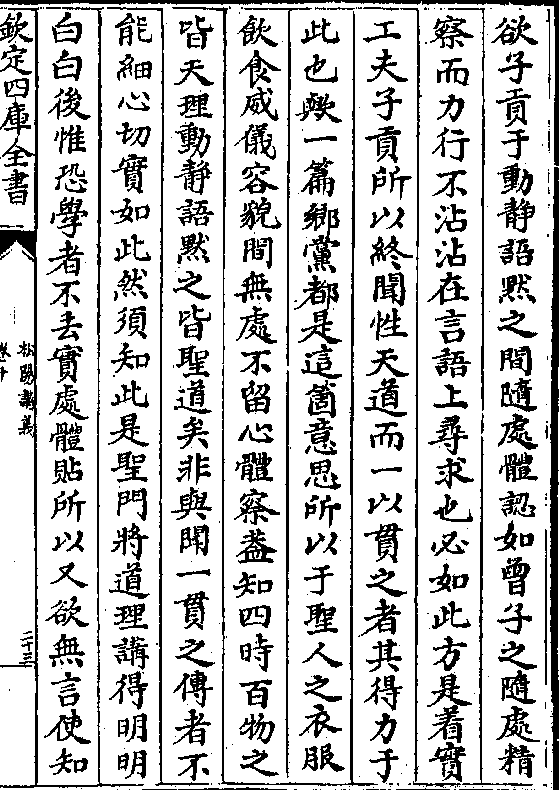 欲子貢于動静語黙之間隨處體認如曽子之隨處精
察而力行不沾沾在言語上尋求也必如此方是着實
工夫子貢所以終聞性天道而一以貫之者其得力于
此也歟一篇鄉黨都是這箇意思所以于聖人之衣服
飲食威儀容貌間無處不留心體察葢知四時百物之
皆天理動静語黙之皆聖道矣非與聞一貫之傳者不
能細心切實如此然須知此是聖門將道理講得明明
白白後惟恐學者不去實處體貼所以又欲無言使知
欽定四庫全書
松陽講義
卷十
二十三